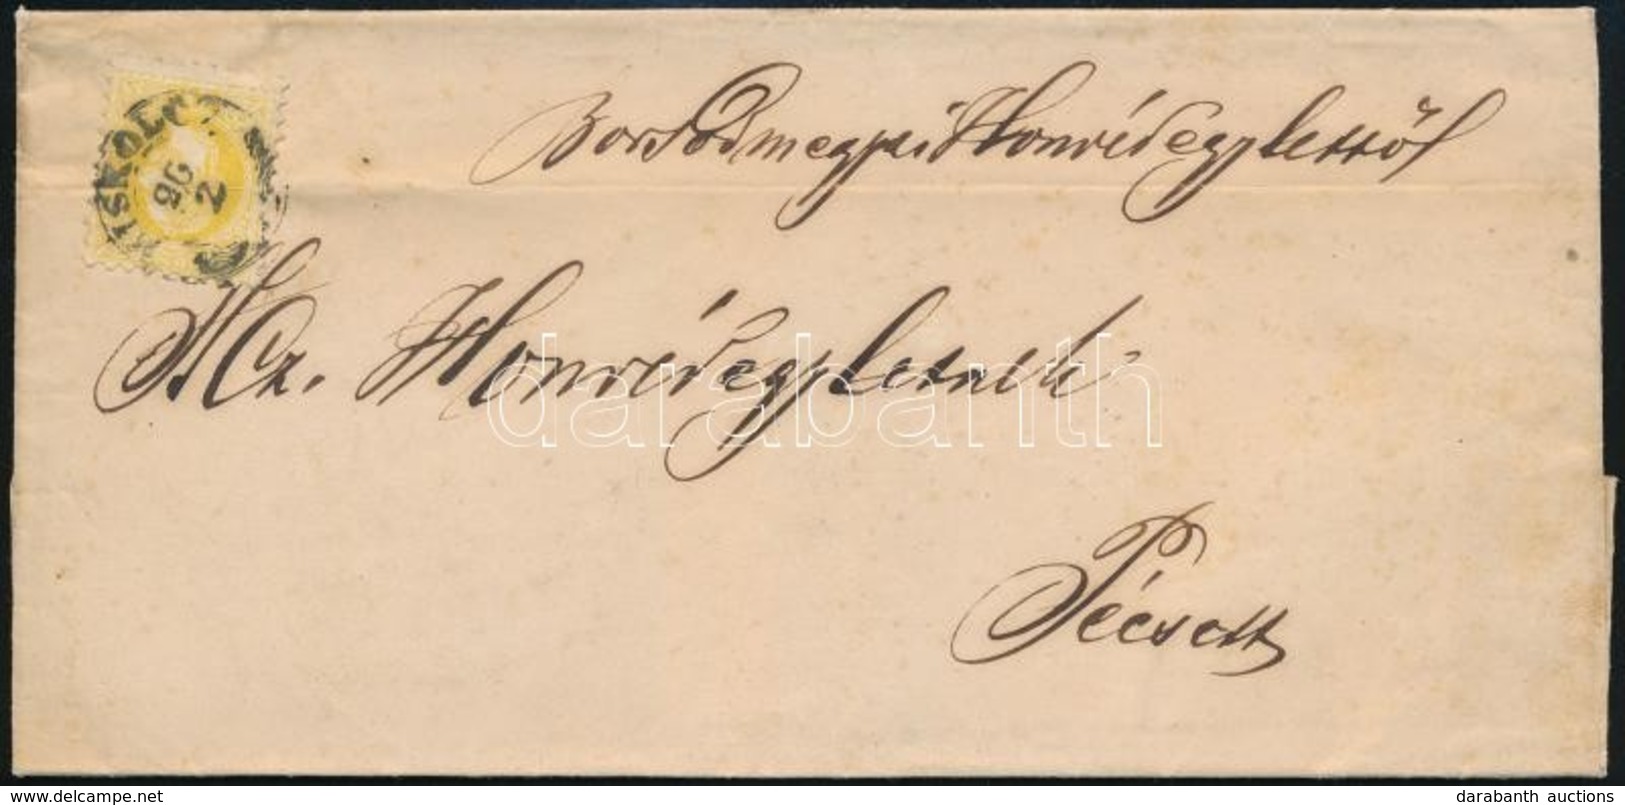 Borsodmegyei Honvédegylettől
MISKOLCZ
26
2
A Mz. Honvédegyletnek
Pécsett
darabanth
www.delcampe.net
darabanth auctions